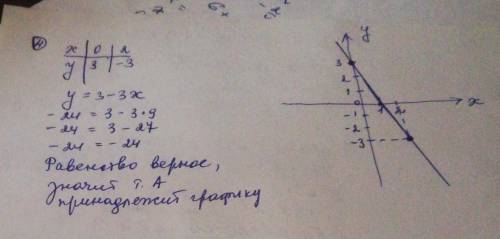 ④
x | 0 | 2
y | 3 | -3
y = 3 - 3x
-24 = 3 - 3*9
-24 = 3 - 27
-24 = -24
Равенство верное,
значит т. А
принадлежит графику
y
3
2
1
0
1
2
x
-1
-2
-3